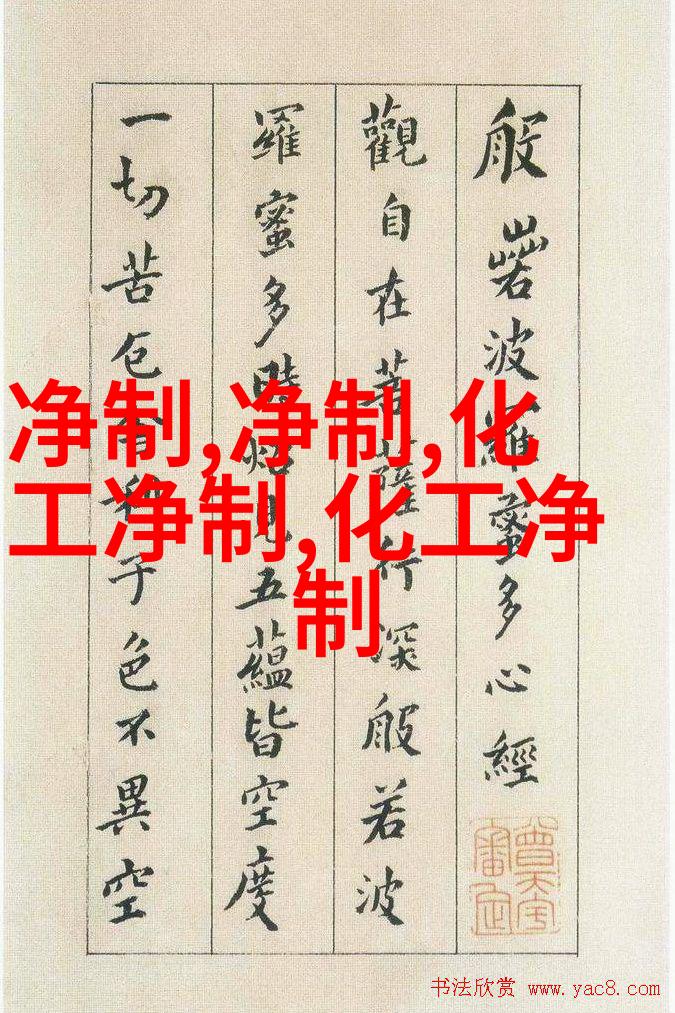 般若波羅蜜多心經
觀自在菩薩行深般若波
羅蜜多時照見五蘊皆空度
一切苦厄舍利子色不異空
净制,净制,化
工净制,化工净
制
书法欣赏 www.yac8.com